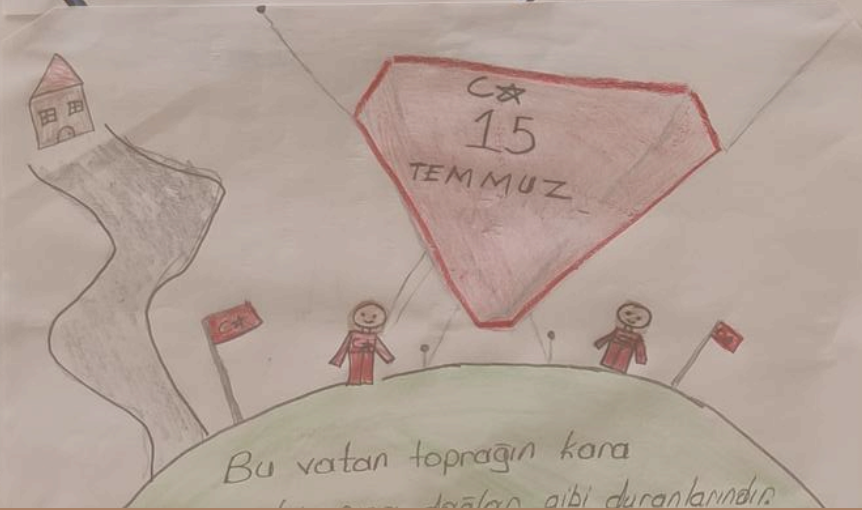 15
TEMMUZ
Bu vatan toprağın kara
dağları gibi duranlarındır.